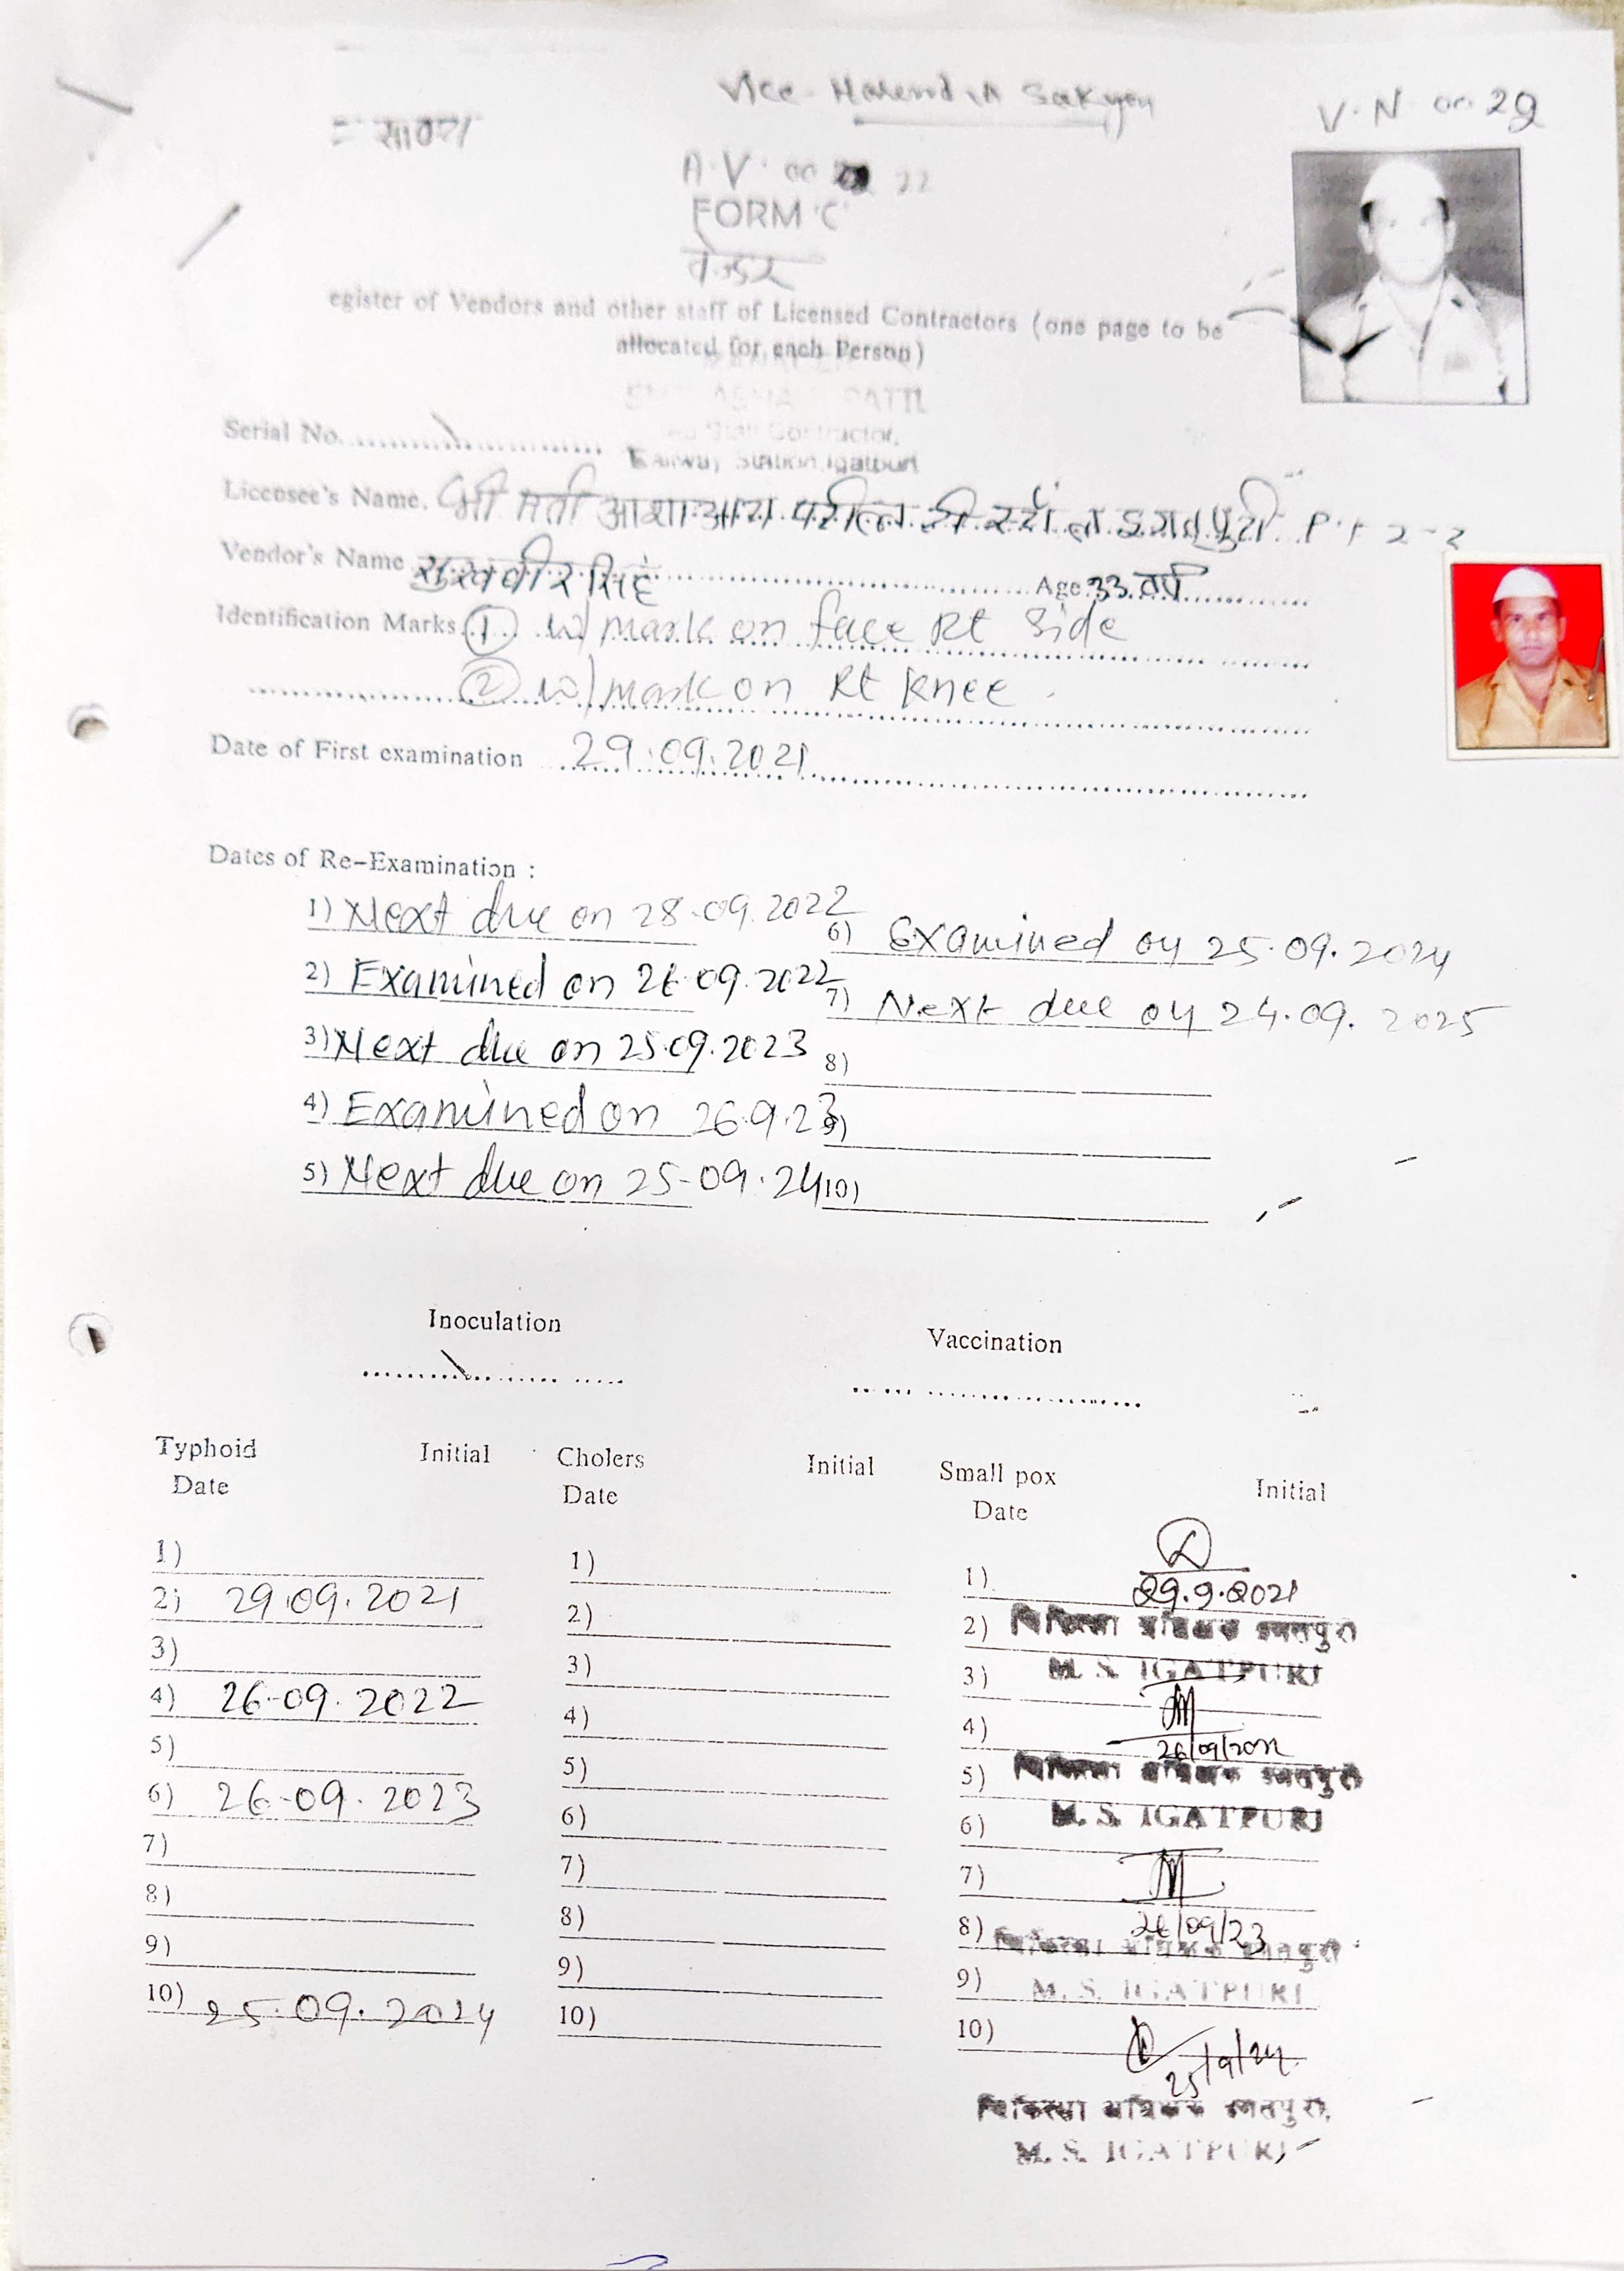 Vice - Harendra Sakyon
V. N. 00 29
A. V. 00 22
FORM 'C'
वेन्डर
egister of Vendors and other staff of Licensed Contractors (one page to be
allocated for each Person)
Contractor,
Railway Station, Igatpuri
Serial No.
Licensee's Name. श्री मती आशा आय पटील टी स्टॉल इगतपुरी P.F 2-2
Vendor's Name सुखवीर सिंह Age 33 वर्ष
Identification Marks. ① w/mark on face Rt side
② w/mark on Rt knee
Date of First examination 29.09.2021
Dates of Re-Examination :
1) Next due on 28.09.2022
2) Examined on 26.09.2022
3) Next due on 25.09.2023
4) Examined on 26.9.23
5) Next due on 25-09.24
6) Examined on 25.09.2024
7) Next due on 24.09.2025
8)
9)
10)
Inoculation
Vaccination
Typhoid Initial Cholers Initial Small pox Initial
Date Date Date
1) 1) 1)
2) 29.09.2021 2) 29.9.2021
2) चिकित्सा अधिक्षक इगतपुरी
3) 3) 3) M. S. IGATPURI
4) 26-09.2022 4) 4) 26/09/2022
5) 5) 5) चिकित्सा अधिक्षक इगतपुरी
6) 26-09.2023 6) 6) M. S. IGATPURI
7) 7) 7)
8) 8) 8) 26/09/23
चिकित्सा अधिक्षक इगतपुरी
9) 9) 9) M. S. IGATPURI
10) 25.09.2024 10) 10) 25/9/24
चिकित्सा अधिक्षक इगतपुरी
M. S. IGATPURI